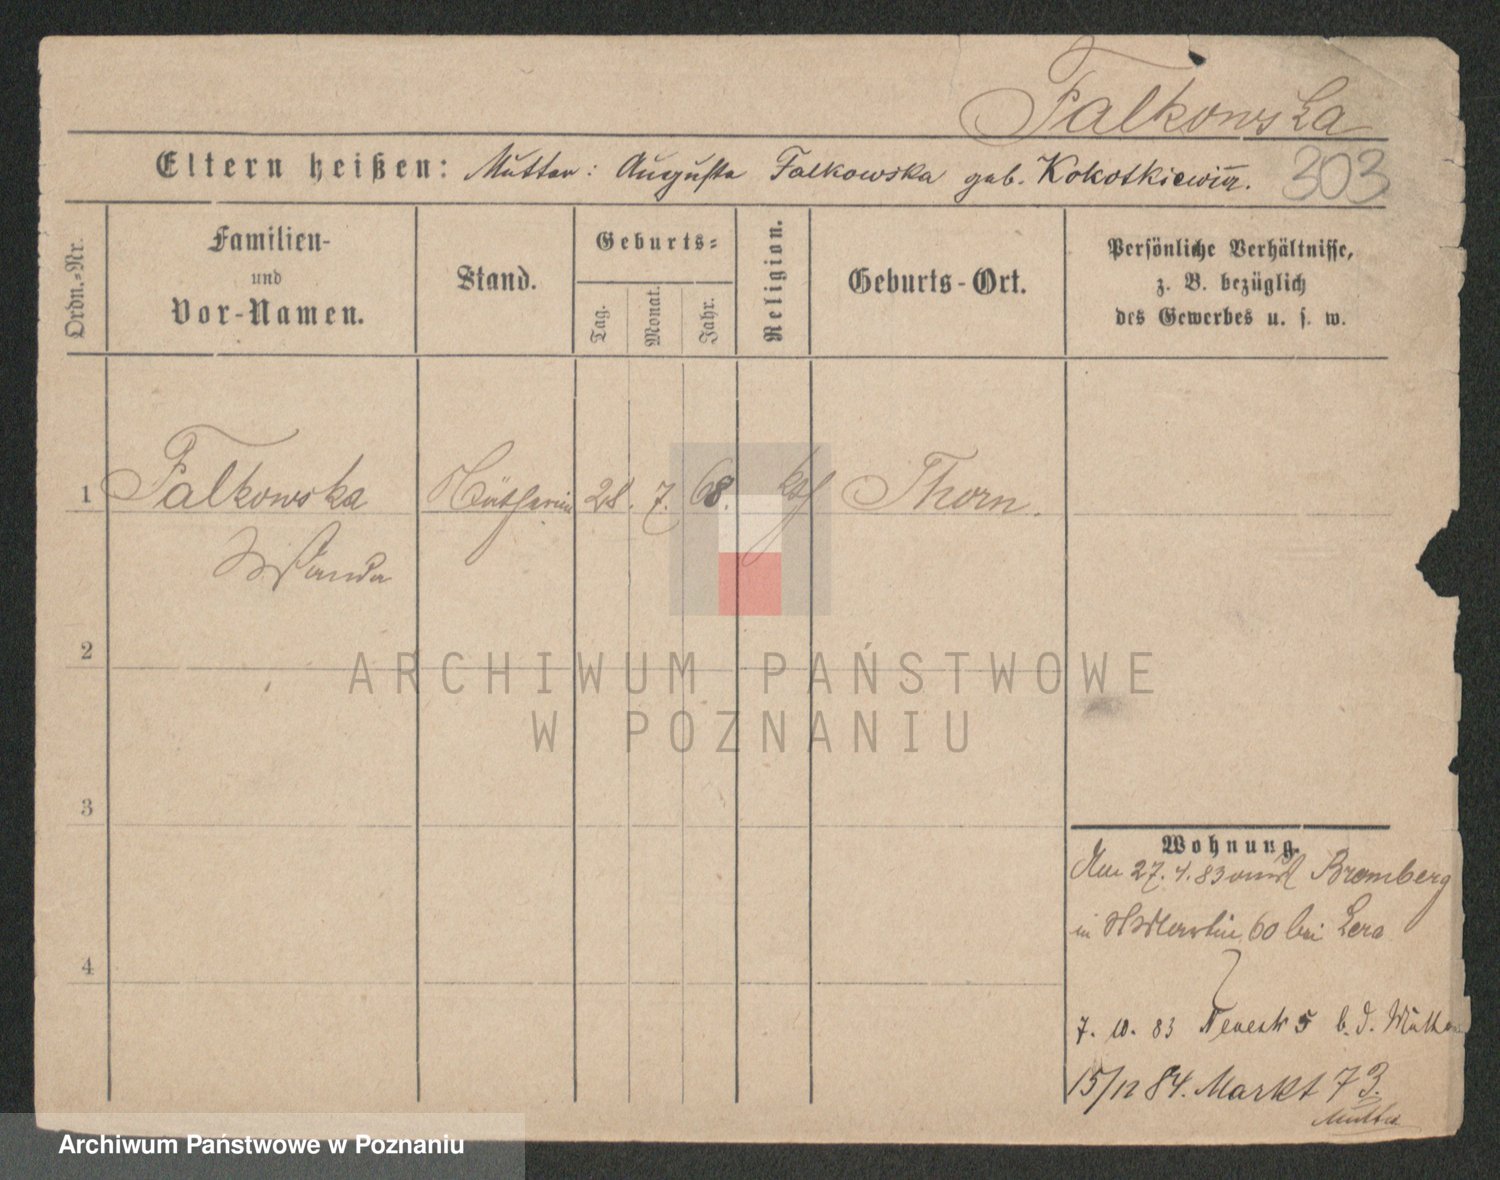 Falkowska
Eltern heißen: Mutter: Augusta Falkowska geb. Kokotkiewicz.
303
Ordn.-Nr.
Familien-
und
Vor-Namen.
Stand.
Geburts-
Tag.
Monat.
Jahr.
Religion.
Geburts-Ort.
Persönliche Verhältnisse,
z. B. bezüglich
des Gewerbes u. s. w.
1 Falkowska 28. 7. 68. kth Thorn.
Wanda
2
3
4
Wohnung.
27. 4. 83 Bromberg
in 60 bei
7. 10. 83 5 b. d. Mutter
15/12 84. Markt 73.
Mutter
ARCHIWUM PAŃSTWOWE
W POZNANIU
Archiwum Państwowe w Poznaniu